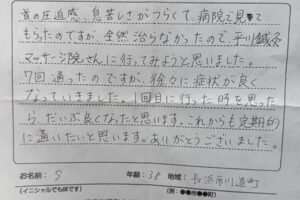 首の圧迫感、息苦しさがつらくて、病院で見て
もらったのですが、全然治らなかったので、平川鍼灸
マッサージ院さんに行ってみようと思いました。
7回通ったのですが、徐々に症状が良く
なっていきました。1回目に行った時を思った
ら、だいぶ良くなったと思います。これからも定期的
に通いたいと思います。ありがとうございました。
お名前: S 年齢: 38 地域: 長浜市川道町
(イニシャルでも可です) (例: ●●市●●町)